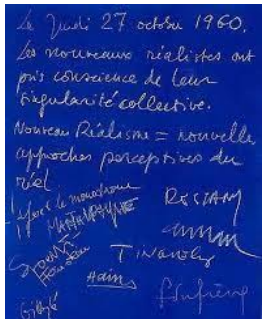 Le Jeudi 27 octobre 1960.
Les nouveaux réalistes ont
pris conscience de leur
singularité collective.
Nouveau Réalisme = nouvelles
approches perceptives du
réel
Yves le monochrome
RESTANY
Tinguely
Hains